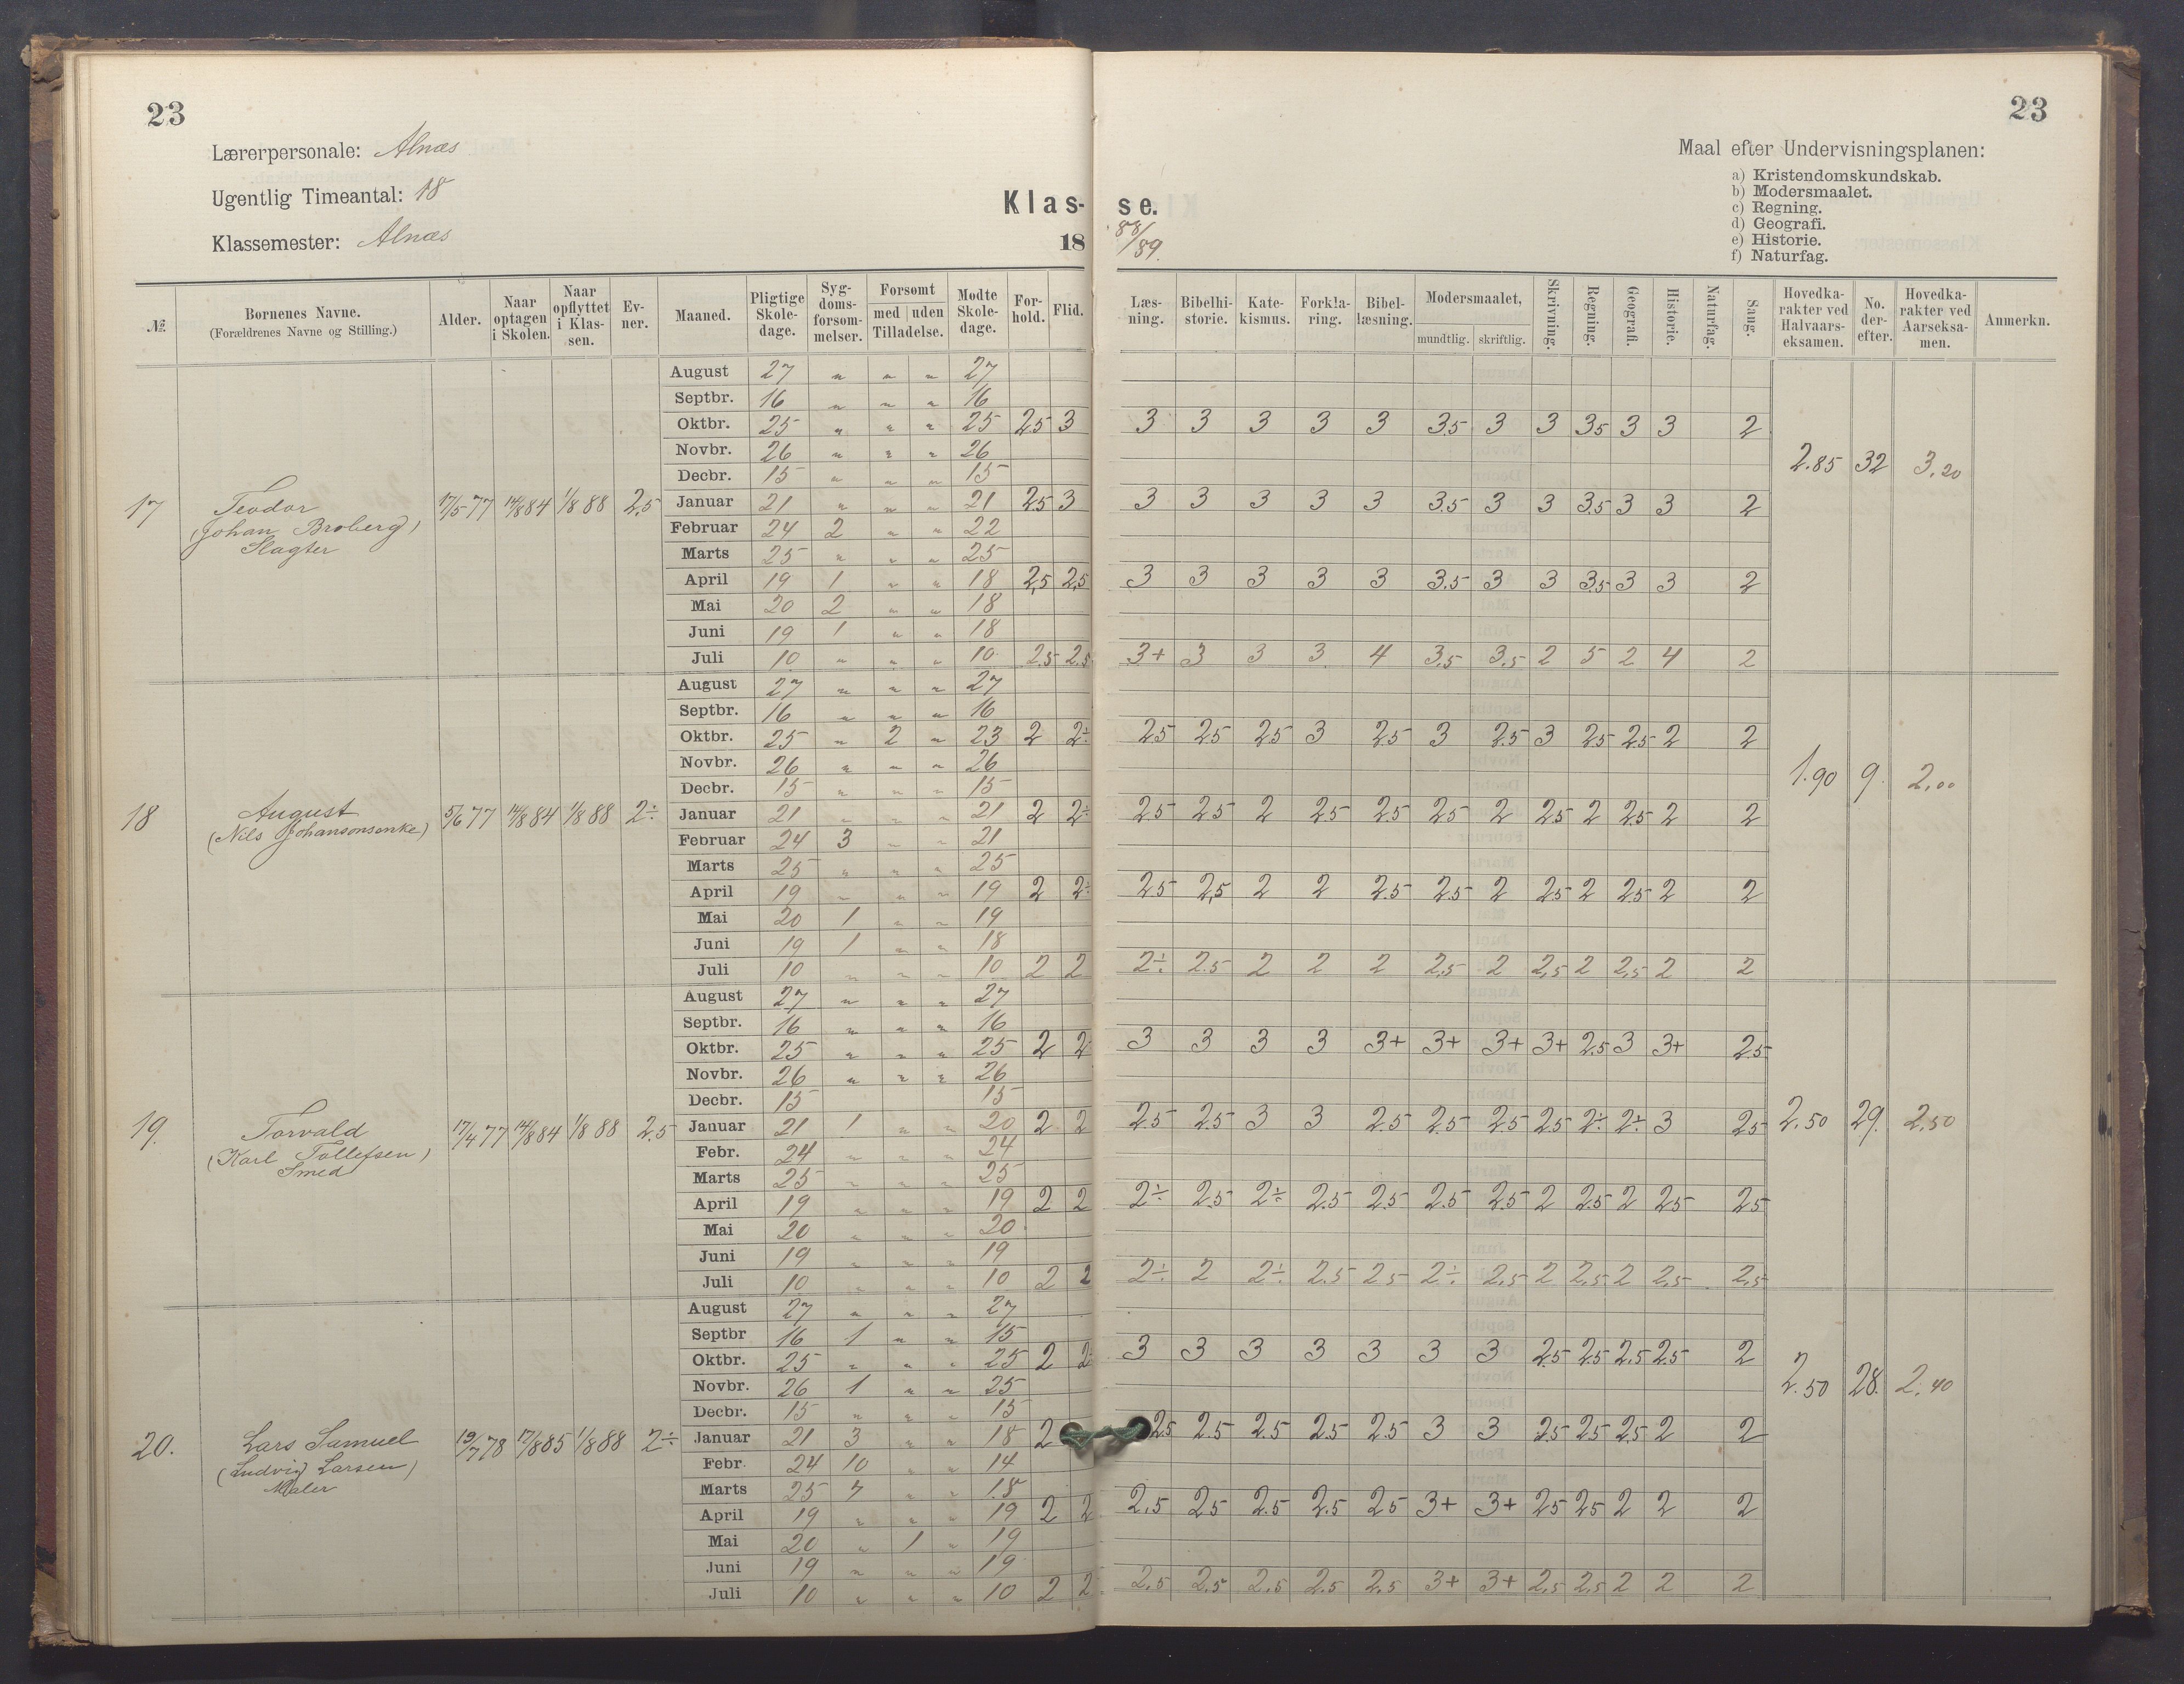 23
23
Lærerpersonale: Alnæs
Ugentlig Timeantal: 18
Klassemester: Alnæs
Klas-se.
18 88/89.
Maal efter Undervisningsplanen:
a) Kristendomskundskab.
b) Modersmaalet.
c) Regning.
d) Geografi.
e) Historie.
f) Naturfag.
№. Børnenes Navne. (Forældrenes Navne og Stilling.) Alder. Naar optagen i Skolen. Naar opflyttet i Klassen. Evner. Maaned. Pligtige Skoledage. Sygdomsforsømmelser. Forsømt med | uden Tilladelse. Mødte Skoledage. Forhold. Flid. Læsning. Bibelhistorie. Katekismus. Forklaring. Bibellæsning. Modersmaalet, mundtlig. skriftlig. Skrivning. Regning. Geografi. Historie. Naturfag. Sang. Hovedkarakter ved Halvaarseksamen. No. derefter. Hovedkarakter ved Aarseksamen. Anmerkn.
17 Teodor (Johan Broberg) Slagter 17/5 77 14/8 84 1/8 88 2,5 2.85 32 3.20
August 27 " " " 27
Septbr. 16 " " " 16
Oktbr. 25 " " " 25 2,5 3 3 3 3 3 3 3.5 3 3 3.5 3 3 2
Novbr. 26 " " " 26
Decbr. 15 " " " 15
Januar 21 " " " 21 2,5 3 3 3 3 3 3 3.5 3 3 3.5 3 3 2
Februar 24 2 " " 22
Marts 25 " " " 25
April 19 1 " " 18 2,5 2,5 3 3 3 3 3 3.5 3 3 3.5 3 3 2
Mai 20 2 " " 18
Juni 19 1 " " 18
Juli 10 " " " 10 2.5 2.5 3+ 3 3 3 4 3.5 3.5 2 5 2 4 2
18 August (Nils Johansonsenke) 5/6 77 14/8 84 1/8 88 2÷ 1.90 9. 2,00
August 27 " " " 27
Septbr. 16 " " " 16
Oktbr. 25 " 2 " 23 2 2÷ 2.5 2.5 2.5 3 2.5 3 2.5 3 2.5 2.5 2 2
Novbr. 26 " " " 26
Decbr. 15 " " " 15
Januar 21 " " " 21 2 2÷ 2.5 2.5 2 2.5 2.5 2.5 2 2.5 2 2.5 2 2
Februar 24 3 " " 21
Marts 25 " " " 25
April 19 " " " 19 2 2÷ 2.5 2,5 2 2 2.5 2.5 2 2.5 2 2.5 2 2
Mai 20 1 " " 19
Juni 19 1 " " 18
Juli 10 " " " 10 2 2 2÷ 2.5 2 2 2 2,5 2 2,5 2 2,5 2 2
19. Torvald (Karl Tollefsen) Smed 17/4 77 14/8 84 1/8 88 2.5 2.50 29. 2,50
August 27 " " " 27
Septbr. 16 " " " 16
Oktbr. 25 " " " 25 2 2 3 3 3 3 3+ 3+ 3+ 3+ 2.5 3 3+ 2.5
Novbr. 26 " " " 26
Decbr. 15 15
Januar 21 1 " " 20 2 2 2.5 2.5 3 3 2.5 2.5 2.5 2.5 2÷ 2÷ 3 2.5
Febr. 24 " " " 24
Marts 25 " " " 25
April 19 " " " 19 2 2 2÷ 2.5 2÷ 2.5 2.5 2.5 2.5 2 2.5 2 2.5 2.5
Mai 20 " " " 20
Juni 19 " " " 19
Juli 10 " " " 10 2 2 2÷ 2 2÷ 2.5 2.5 2÷ 2.5 2 2.5 2 2.5 2,5
20. Lars Samuel (Ludvig Larsen) Maler 19/7 78 17/8 85 1/8 88 2÷ 2.50 28. 2.40
August 27 " " " 27
Septbr 16 1 " " 15
Oktbr. 25 " " " 25 2 2÷ 3 3 3 3 3 3 3 2.5 2.5 2.5 2.5 2
Novbr. 26 1 " " 25
Decbr. 15 " " " 15
Januar 21 3 " " 18 2 2.5 2.5 2.5 2.5 2.5 3 3 2.5 2.5 2.5 2 2
Febr. 24 10 " " 14
Marts 25 7 " " 18
April 19 " " " 19 2 2 2.5 2.5 2.5 2.5 2.5 3+ 3+ 2.5 2.5 2 2 2
Mai 20 " 1 " 19
Juni 19 " " " 19
Juli 10 " " " 10 2 2 2.5 2.5 2.5 2.5 2.5 3+ 3+ 2,5 2,5 2 2 2